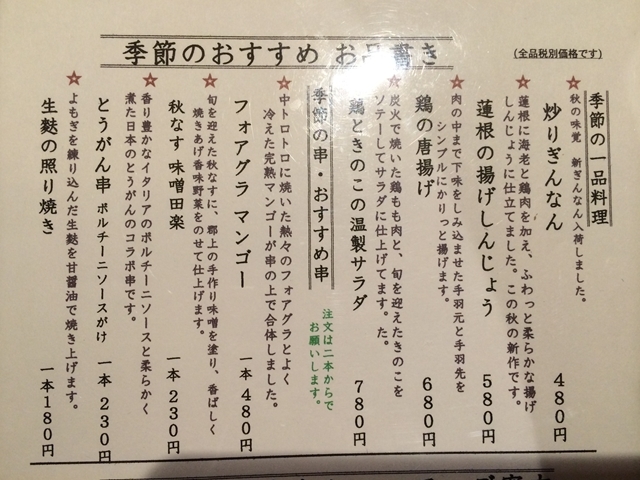 季節のおすすめ お品書き
(全品税別価格です)
季節の一品料理
☆秋の味覚 新ぎんなん入荷しました。
炒りぎんなん 480円
☆蓮根に海老と鶏肉を加え、ふわっと柔らかな揚げ
しんじょうに仕立てました。この秋の新作です。
蓮根の揚げしんじょう 580円
☆肉の中まで下味をしみ込ませた手羽元と手羽先を
シンプルにかりっと揚げます。
鶏の唐揚げ 680円
☆炭火で焼いた鶏もも肉と、旬を迎えたきのこを
ソテーしてサラダに仕上げてます。た。
鶏ときのこの温製サラダ 780円
季節の串・おすすめ串
注文は二本からで
お願いします。
☆中トロトロに焼いた熱々のフォアグラとよく
冷えた完熟マンゴーが串の上で合体しました。
フォアグラ マンゴー 一本 480円
☆旬を迎えた秋なすに、郡上の手作り味噌を塗り、香ばしく
焼きあげ香味野菜をのせて仕上げます。
秋なす 味噌田楽 一本 230円
☆香り豊かなイタリアのポルチーニソースと柔らかく
煮た日本のとうがんのコラボ串です。
とうがん串 ポルチーニソースがけ 一本 230円
☆よもぎを練り込んだ生麩を甘醤油で焼き上げます。
生麩の照り焼き 一本180円